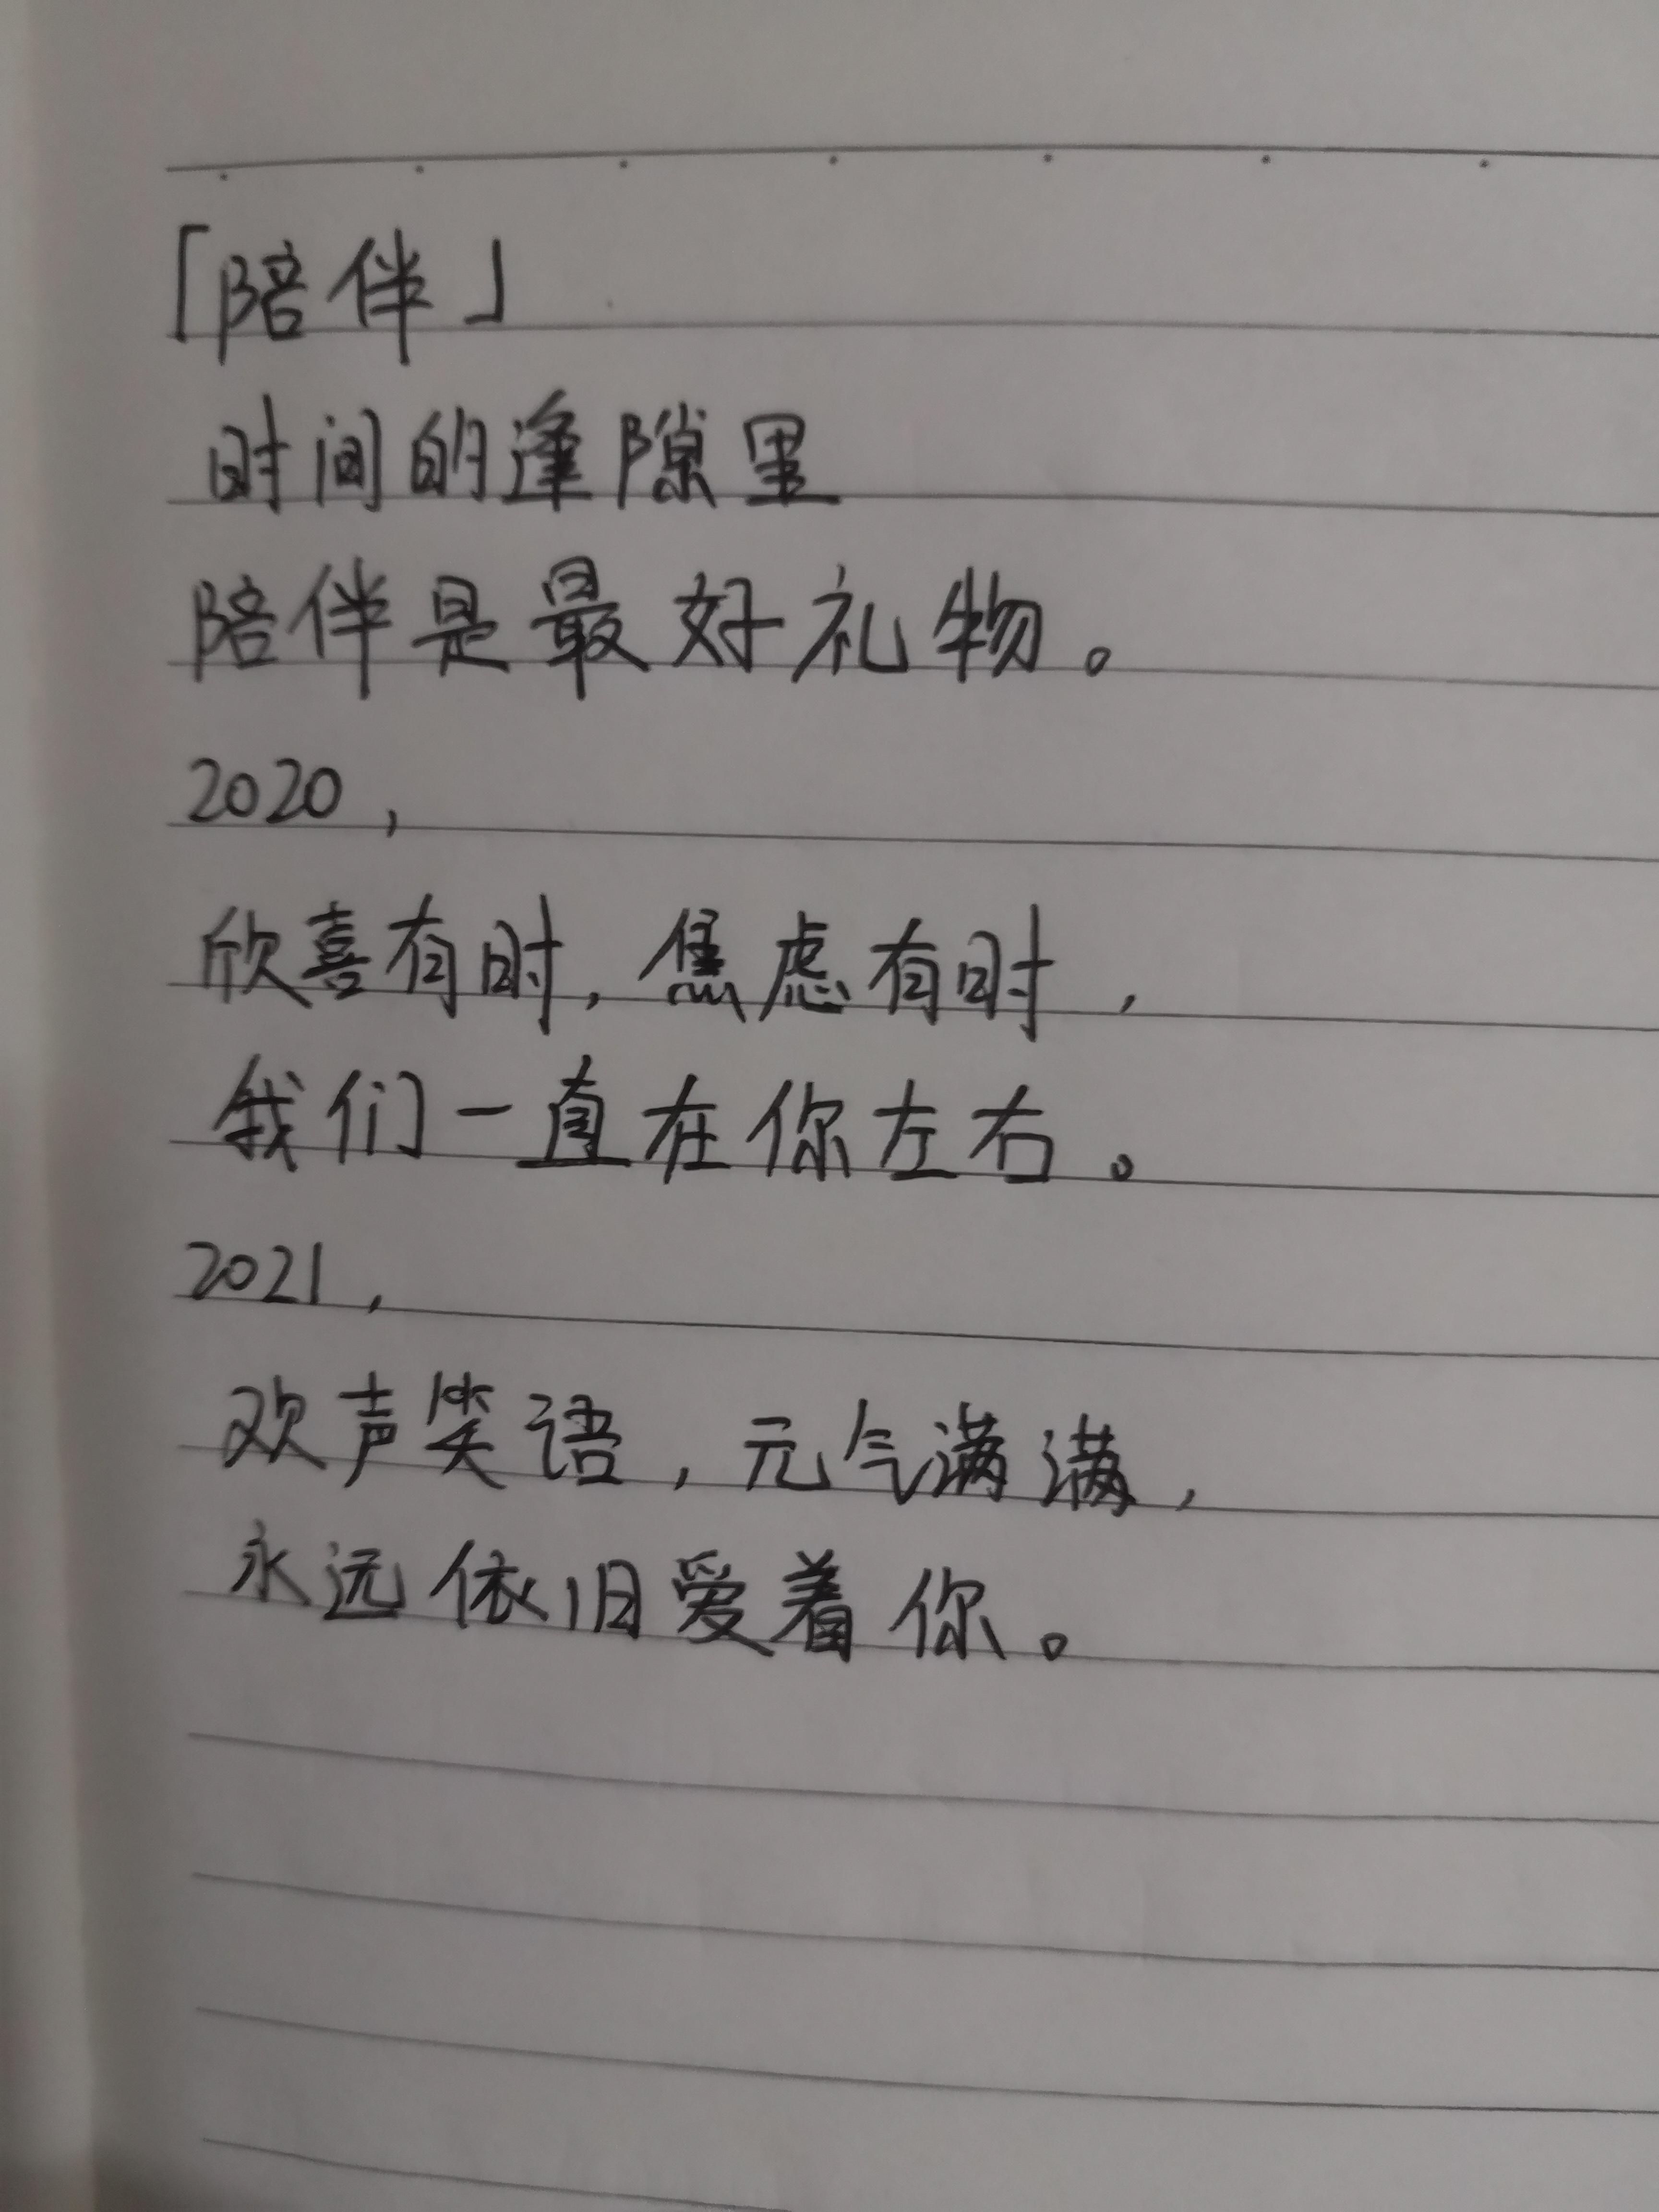 「陪伴」
时间的逢隙里
陪伴是最好礼物。
2020,
欣喜有时,焦虑有时,
我们一直在你左右。
2021,
欢声笑语,元气满满,
永远依旧爱着你。